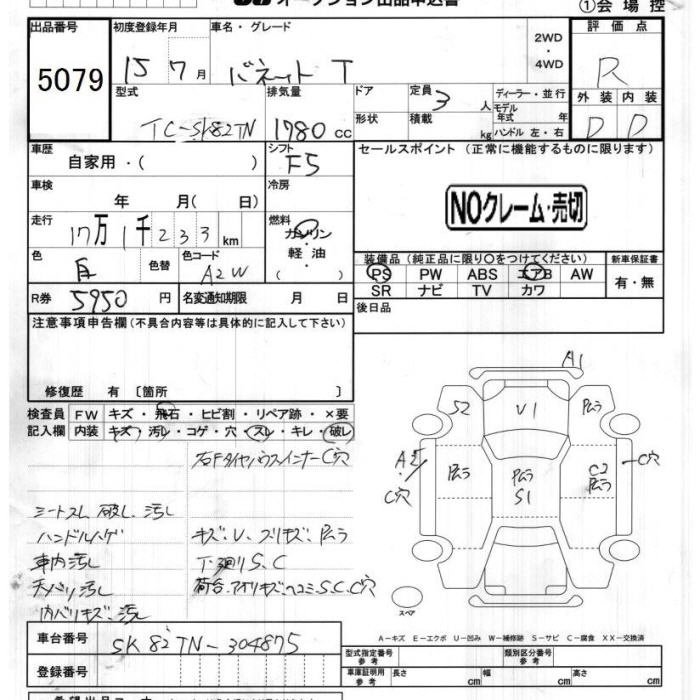 オークション出品申込書 ①会場控
出品番号 5079
初度登録年月 15年 7月
車名・グレード バネット T
2WD ・ 4WD
評価点 R
外装 D 内装 D
型式 TC-SK82TN
排気量 1780 cc
ドア 形状
定員 3 人
積載 kg
ディーラー・並行
モデル年式 年
ハンドル 左・右
車歴 自家用・( )
シフト F5
セールスポイント (正常に機能するものに限ります)
NOクレーム・売切
車検 年 月( 日)
冷房
走行 17万1千233 km
燃料 ガソリン 軽油 ( )
色 白 色替 色コード A2W
装備品(純正品に限り○をつけてください) 新車保証書
PS PW ABS エアB AW 有・無
SR ナビ TV カワ
R券 5950 円 名変通知期限 月 日
後日品
注意事項申告欄(不具合内容等は具体的に記入して下さい)
修復歴 有 〔箇所 〕
検査員 FW キズ・飛石・ヒビ割・リペア跡・×要
記入欄 内装 キズ・汚レ・コゲ・穴・スレ・キレ・破レ
右FタイヤハウスインナーC穴
シートスレ 破レ 汚レ
ハンドルハゲ キズ、U、スリキズ、ムラ
車内汚レ 下廻りS、C
天バリ汚レ 荷台、アオリキズ、ヘコミ、S、C、C穴
内バリキズ、汚レ
A1
S2 U1 ムラ
A2 C穴 ムラ ムラ S1 C2 ムラ C穴
スペア
A-キズ E-エクボ U-凹み W-補修跡 S-サビ C-腐食 XX-交換済
車台番号 SK82TN-304875
登録番号
型式指定番号 参考 類別区分番号 参考
車庫証明用 参考 長さ cm 幅 cm 高さ cm